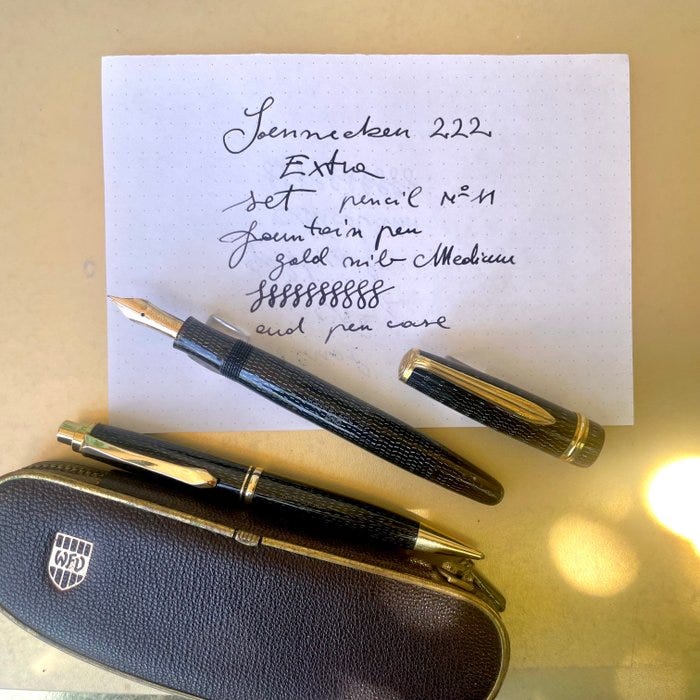 Soennecken 222
Extra
set pencil Nº 11
fountain pen
gold nib Medium
and pen case
WFD